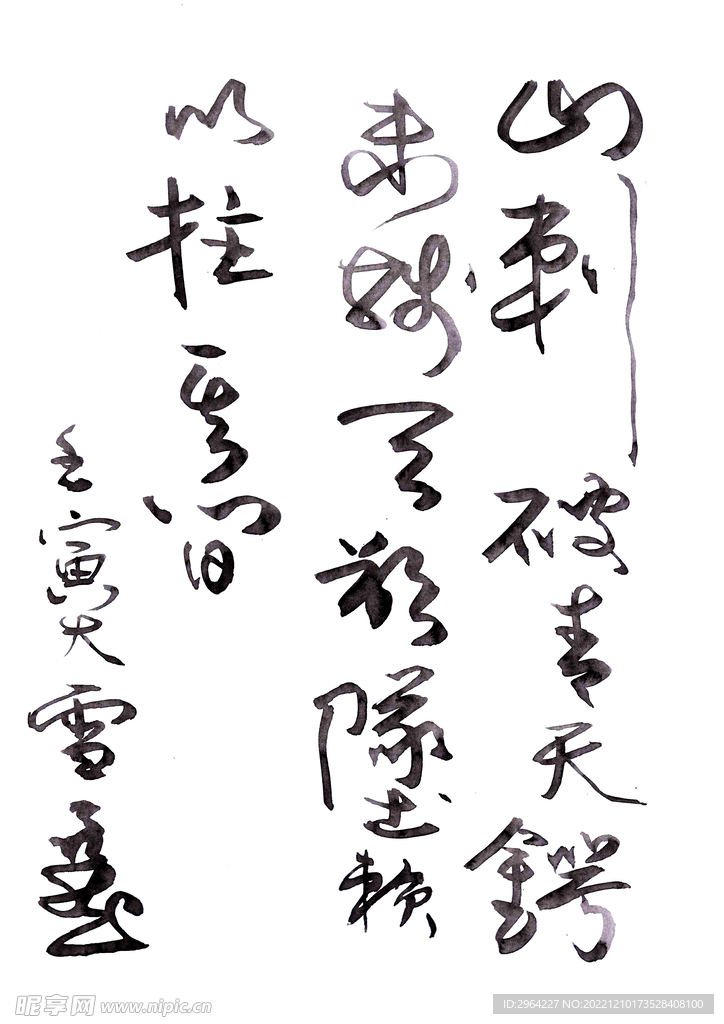 山刺破青天鍔
未残天欲墜賴
以拄其間
壬寅大雪
昵享网 www.nipic.cn
ID:2964227 NO:20221210173528408100